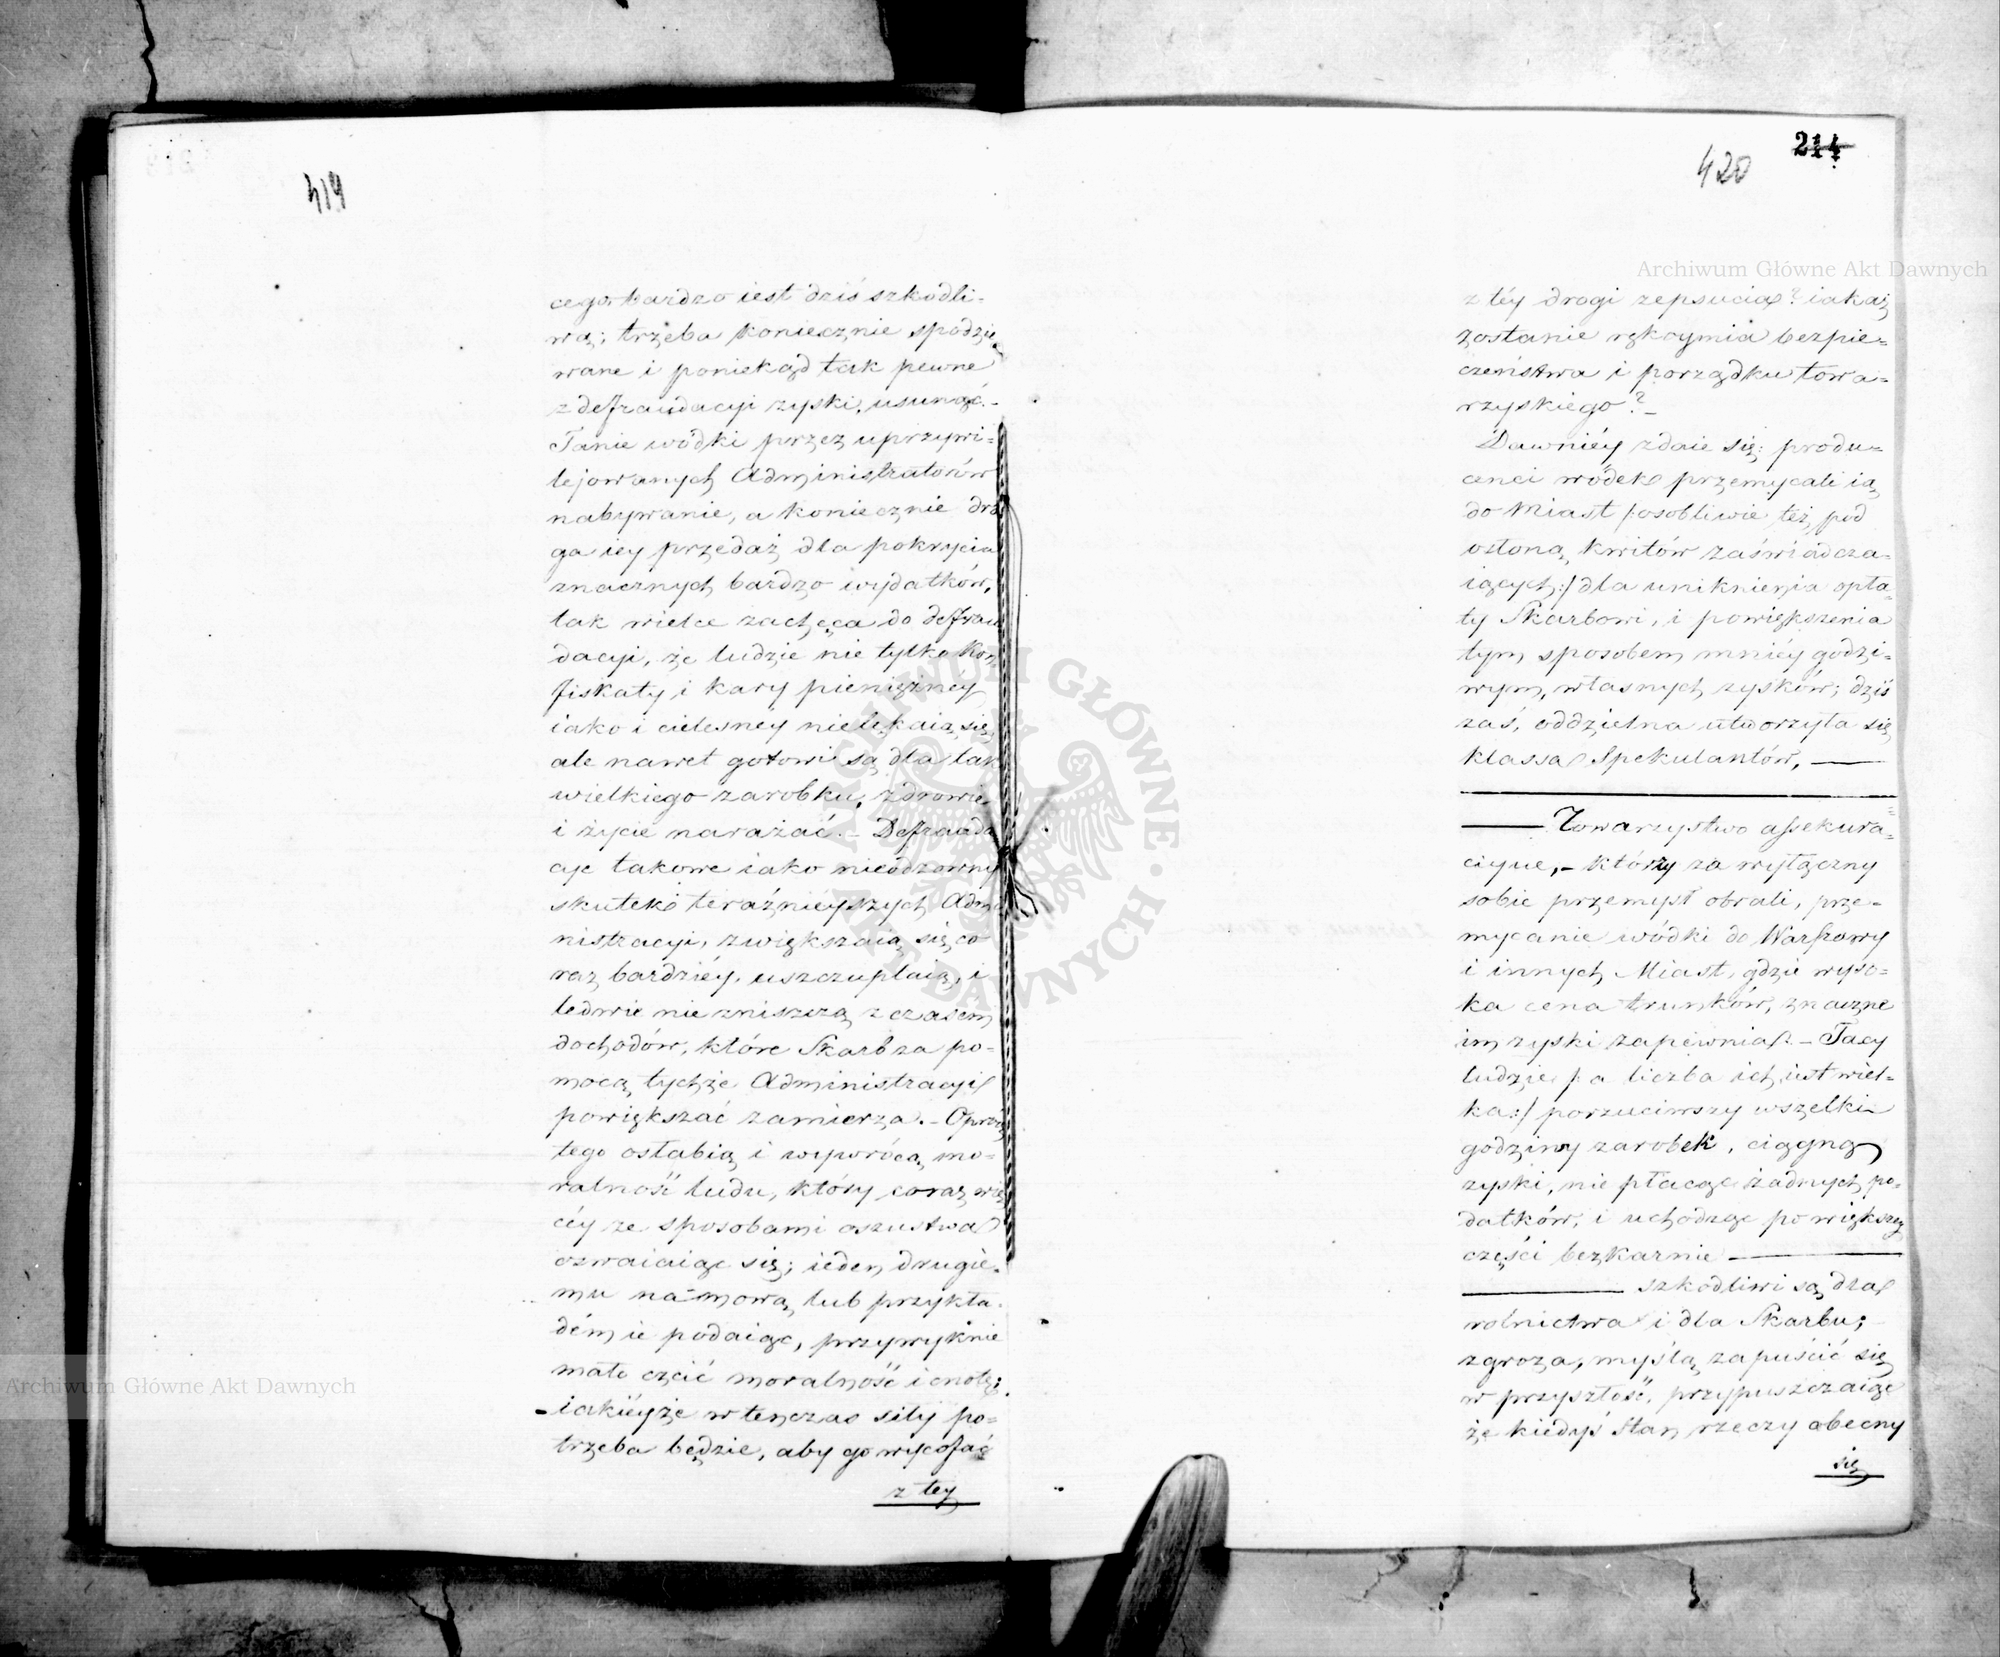 419
cego bardzo iest dziś szkodli=
wą; trzeba koniecznie spodzie
wane i poniekąd tak pewne
z defraudacyi zyski, usunąć.–
Tanie wódki przez uprzywi=
lejowanych Administratorów
nabywanie, a koniecznie dro
ga iey przedaż dla pokrycia
znacznych bardzo wydatków,
tak wielce zachęca do defrau
dacyi, że ludzie nie tylko Kon
fiskaty i kary pieniężney
iako i cielesnéy nielękaią się,
ale nawet gotowi są dla tak
wielkiego zarobku, zdrowie
i życie narażać.– Defrauda
cye takowe iako nieodzowny
skutek teraźniéyszych Admi
nistracyi, zwiększaią się co
raz bardziéy, uszczuplaią, i
ledwie nie zniszczą z czasem
dochodów, które Skarb za po=
mocą tychże Administracyi
powiększać zamierza.– Oprócz
tego osłabią i wywrócą mo=
ralność ludu, który coraz wię
céy ze sposobami oszustwa
ozwaiaiąc się; ieden drugie=
mu namową lub przykła=
dém ie podaiąc, przywyknie
mało czcić moralność i cnotę;
– iakiéyże wtenczas siły po=
trzeba będzie, aby go wycofać
z tey
420
214
Archiwum Główne Akt Dawnych
z téy drogi zepsucia? iakaż
zostanie rękoymia bezpie=
czeństwa i porządku towa=
rzyskiego?–
Dawniéy zdaie się: produ=
cenci wódek przemycali ią
do Miast /:osobliwie też pod
osłoną kwitów zaświadcza=
iących:/ dla uniknienia opła=
ty Skarbowi, i powiększenia
tym sposobem mniéy godzi=
wym, własnych zysków; dziś
zaś, oddzielna utworzyła się
klassa Spekulantów, —
— Towarzystwo assekura=
cyine,– którzy za wyłączny
sobie przemysł obrali, prze=
mycanie wódki do Warszawy
i innych Miast, gdzie wyso=
ka cena trunków, znaczne
im zyski zapewnia.– Tacy
ludzie /: a liczba ich iest wiel=
ka:/ porzuciwszy wszelki
godziwy zarobek, ciągną
zyski, nie płacąc żadnych po=
datków, i uchodząc po większey
części bezkarnie —
— szkodliwi są dla
rolnictwa i dla Skarbu;
zgroza, myślą zapuścić się
w przyszłość, przypuszczaiąc
że kiedyś stan rzeczy obecny
się
ARCHIWUM GŁÓWNE AKT DAWNYCH
Archiwum Główne Akt Dawnych